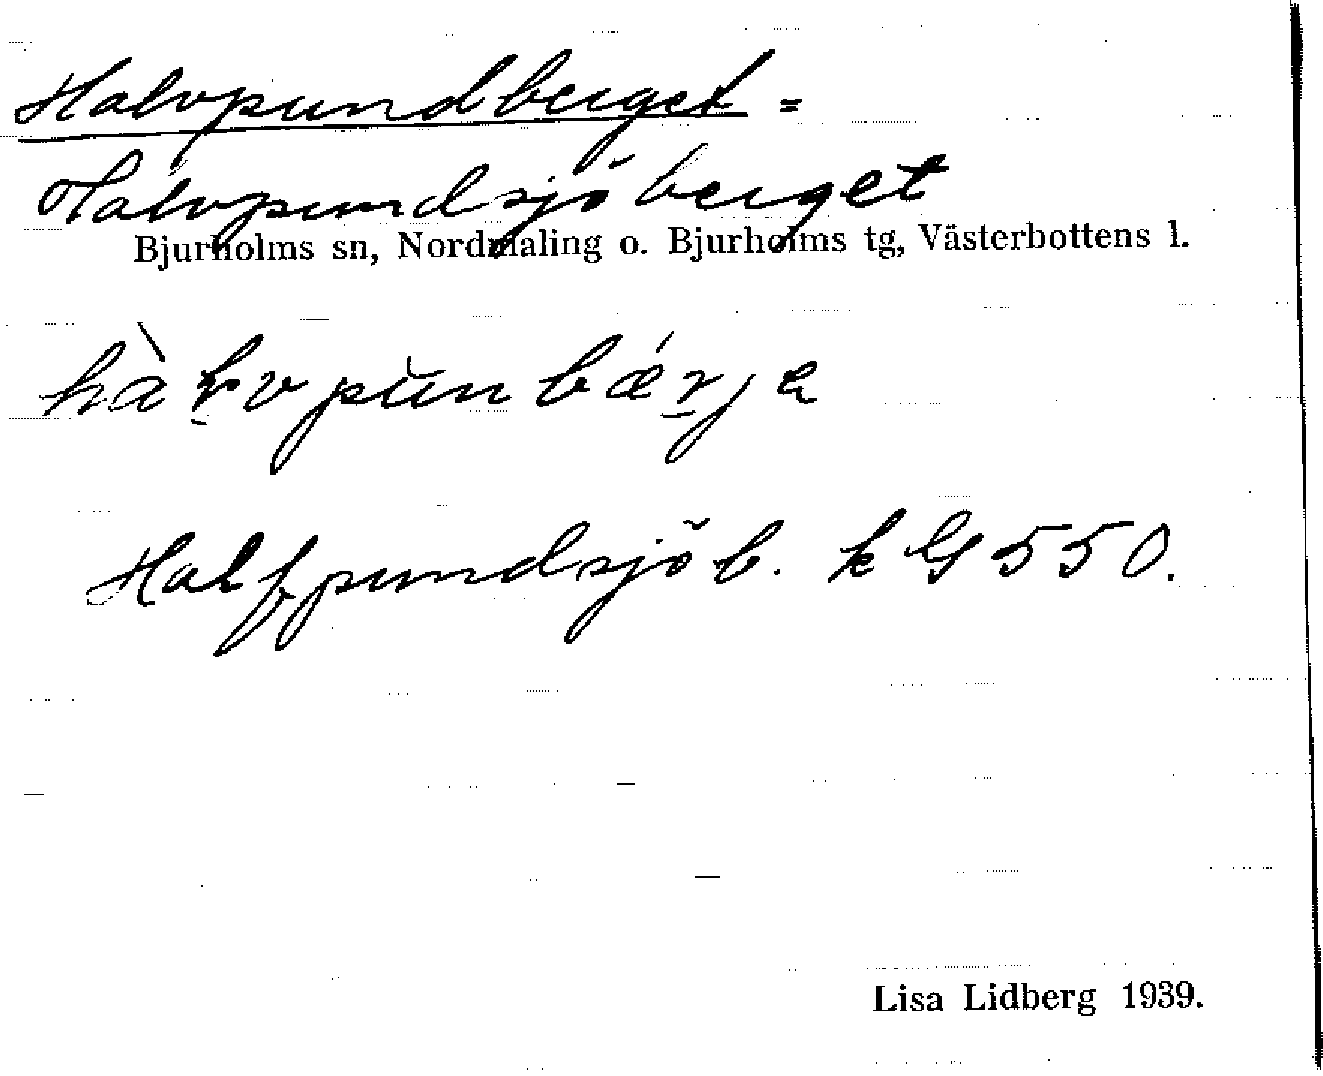 Halvpundberget =
Halvpundsjöberget
Bjurholms sn, Nordmaling o. Bjurholms tg, Västerbottens l.
Halfpundsjöb. k G 550.
Lisa Lidberg 1939.